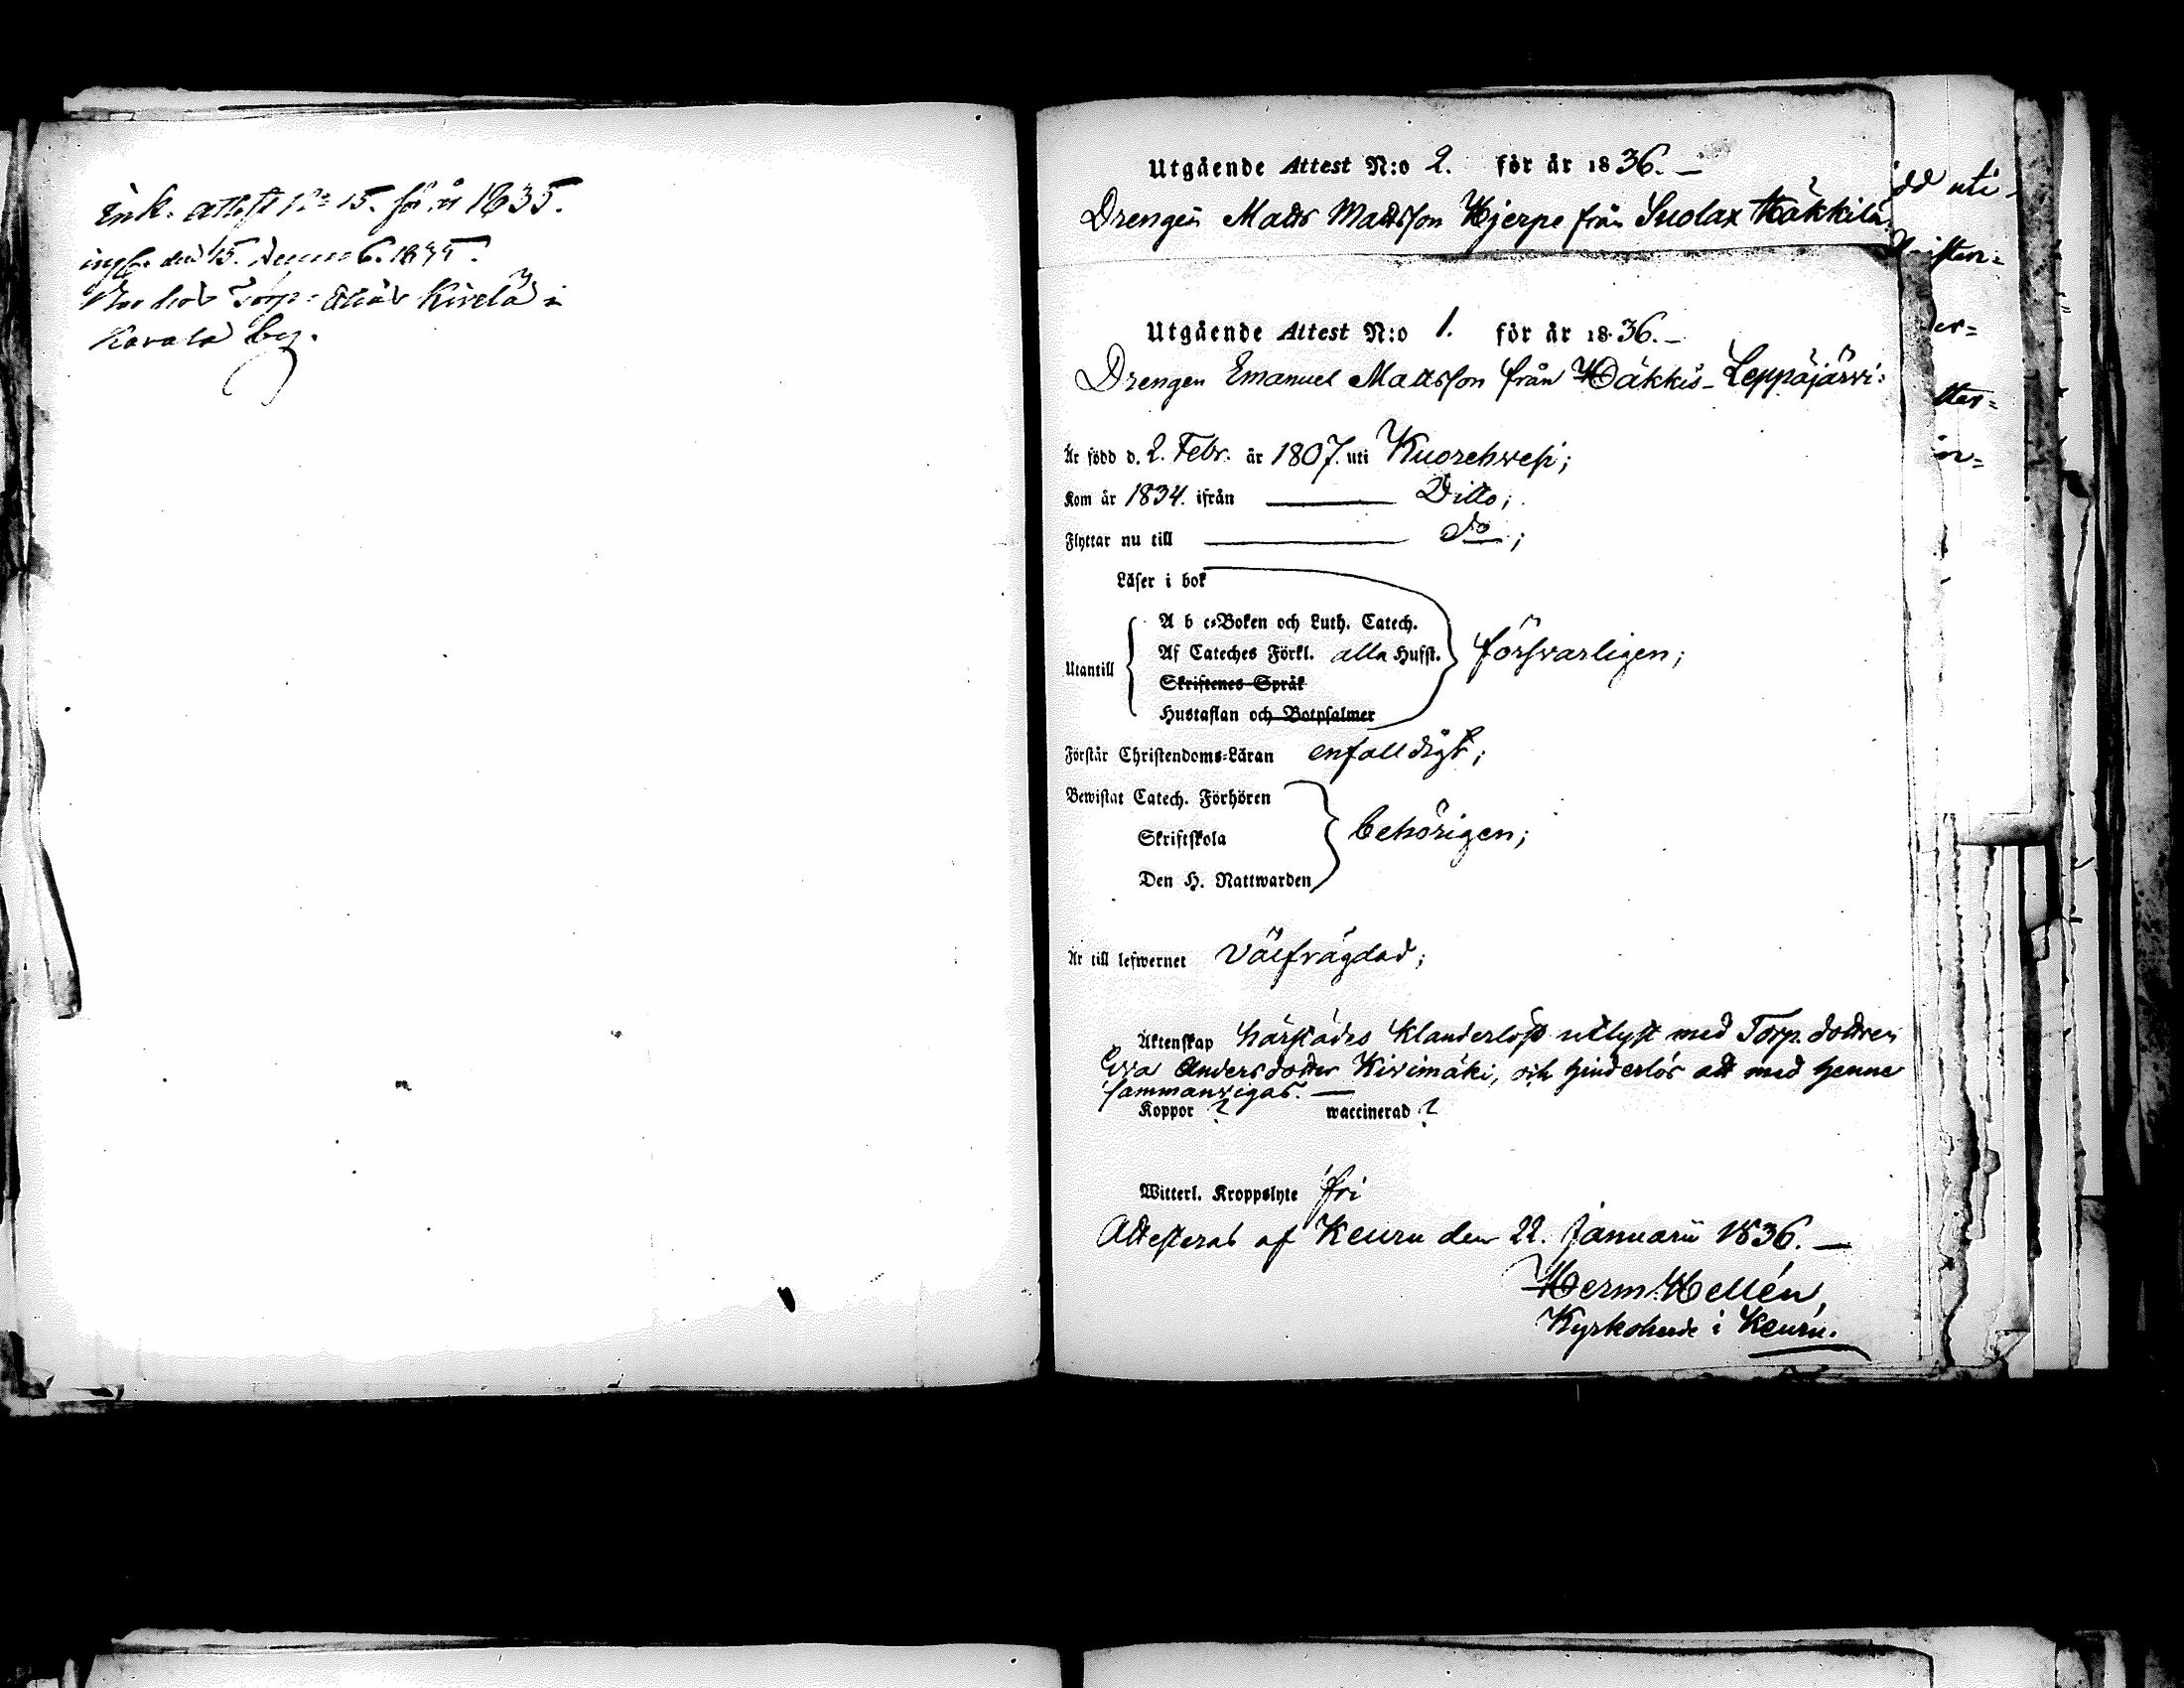 Ink. attest No 15. för år 1835.
ingk. den 15. 1835.
Torp: Kivelä i
Karala by.
Utgående Attest N:o 2. för år 1836. —
Drengen Matts Mattsson Hjerpe från Suolax Häkkilä
Utgående Attest N:o 1. för år 1836. —
Drengen Emanuel Mattsson från Häkkis-Leppäjärvi:
Är född d. 2. Febr. år 1807. uti Kuorehwesi;
Kom år 1834. ifrån — Ditto;
Flyttar nu till — do;
Läser i bok
A b c-Boken och Luth. Catech.
Af Cateches Förkl. alla Hufst. försvarligen;
Utantill
Skriftenes Språk
Hustaflan och Botpsalmer
Förstår Christendoms-Läran enfalldigt;
Bewistat Catech. Förhören
Skriftskola behörigen;
Den H. Nattwarden
Är till lefwernet välfrägdad;
Äktenskap härstädes klanderlöst utlyst med Torp. dottren
Eva Andersdotter Kivimäki, och hinderlös att med henne
sammanvigas. —
Koppor ? waccinerad ?
Witterl. Kroppslyte fri
Attesterat af Keuru den 22. Januarii 1836. —
Herm: Hellén,
Kyrkoherde i Keuru.
dd uti
er=
tter=
ör=